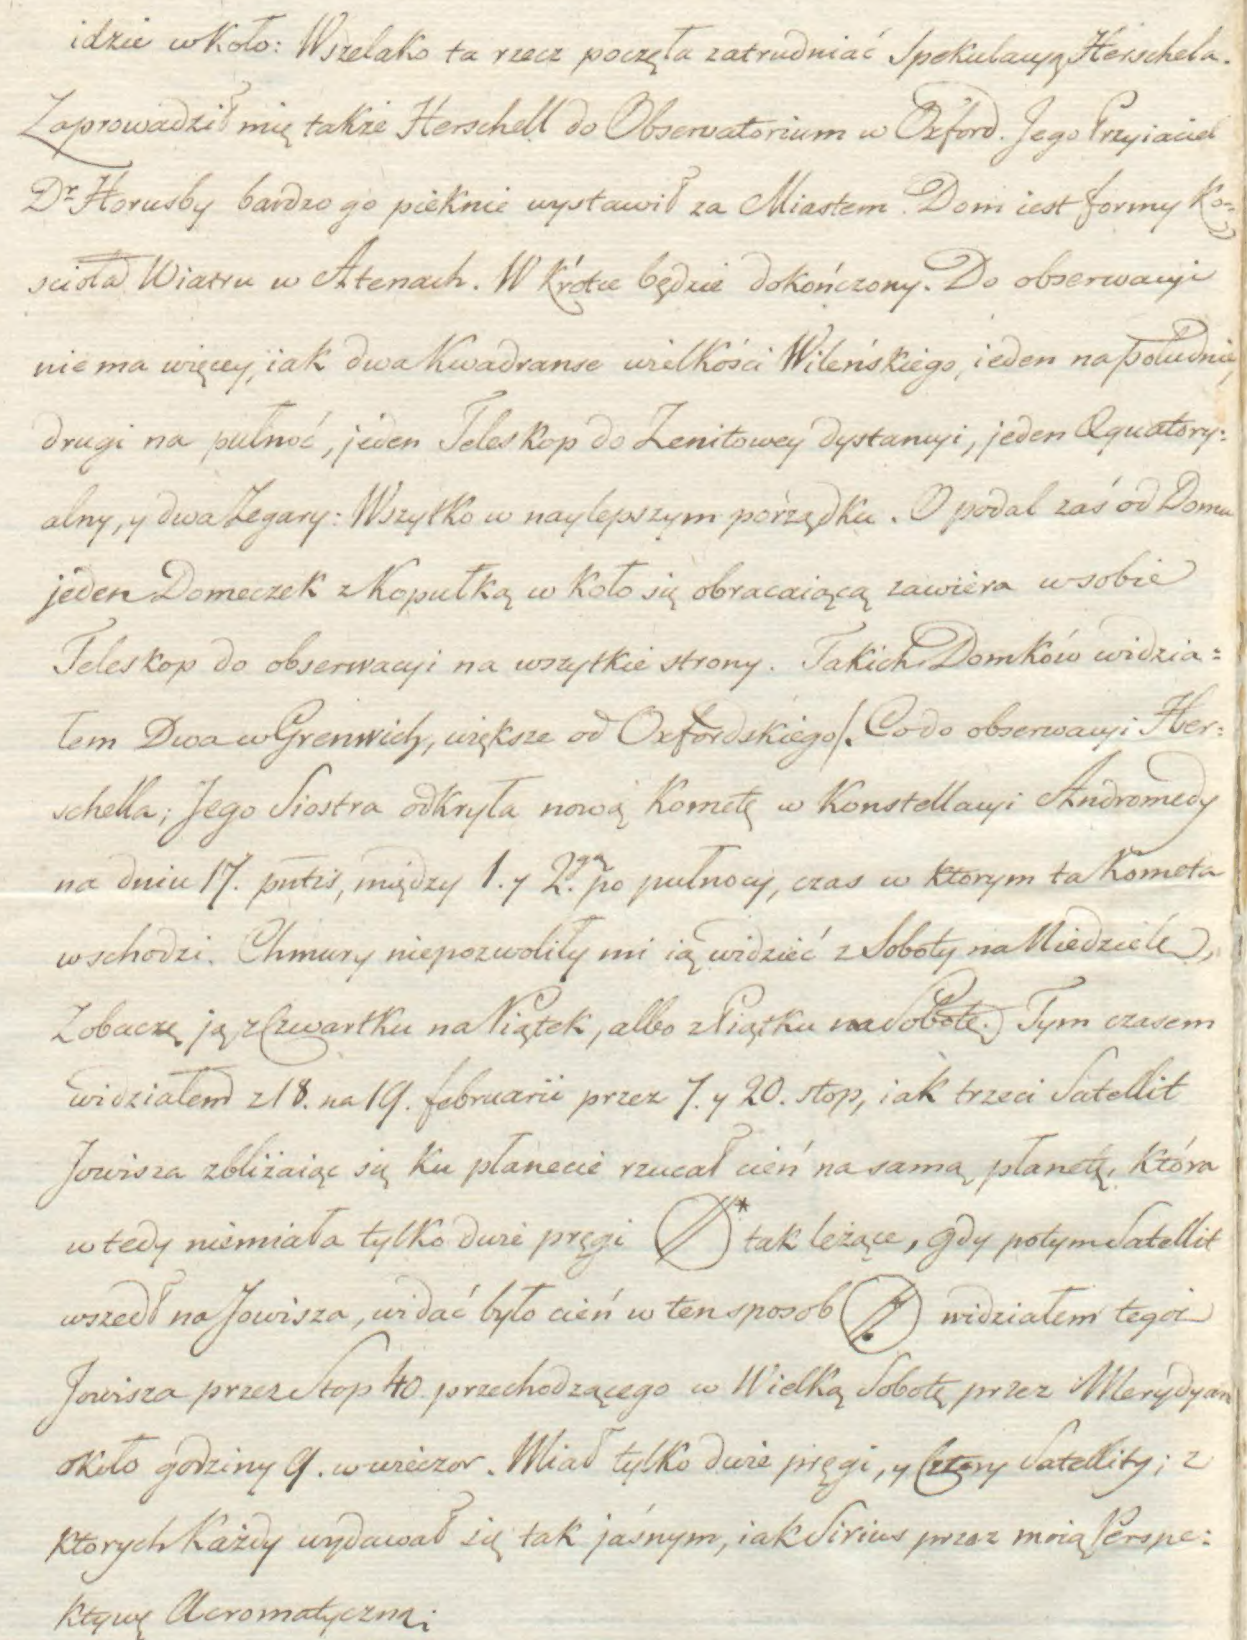 idzie w koło: Wszelako ta rzecz poczęła zatrudniać Spekulacyą Herschela.
Zaprowadził mię także Herschell do Observatorium w Oxford. Jego Przyiaciel
Dr Horusby bardzo go pieknie wystawił za Miastem. Dom iest formy Ko=
scioła Wiatru w Atenach. W krótce będzie dokończony. Do obserwacyi
nie ma więcey, iak dwa Kwadranse wielkości Wileńskiego, ieden na południe,
drugi na pułnoć, jeden Teleskop do Zenitowey dystancyi, jeden Equatory=
alny, y dwa Zegary: Wszytko w naylepszym porządku. O podal zaś od Domu
jeden Domeczek z Kopułką w koło się obracaiącą zawiera w sobie
Teleskop do obserwacyi na wszytkie strony. Takich Domków widzia=
łem Dwa w Grenwich, większe od Oxfordskiego/. Co do obserwacyi Her=
schella; Jego Siostra odkryła nową Kometę w Konstellacyi Andromedy
na dniu 17. pntis, między 1. y 2gą. po pułnocy, czas w ktorym ta Kometa
wschodzi. Chmury niepozwoliły mi ią widzieć z Soboty na Niedzielę,
Zobaczę ją z Czwartku na Piątek, albo z Piątku na Sobotę. Tym czasem
widziałem z 18. na 19. februarii przez 7. y 20. stop, iak trzeci Satellit
Jowisza zbliżaiąc się ku płanecie rzucał cień na samą płanetę, która
w tedy niemiała tylko dwie pręgi * tak leżące, gdy potym Satellit
wszedł na Jowisza, widać było cień w ten sposob widziałem tegoż
Jowisza przez Stop 40. przechodzącego w Wielką Sobotę przez Merydyan
około godziny 9. w wieczor. Miał tylko dwie pręgi, y cztery Satellity; z
ktorych Każdy wydawał się tak jaśnym, iak Sirius przez moią Perspe=
ktywę Acromatyczną;